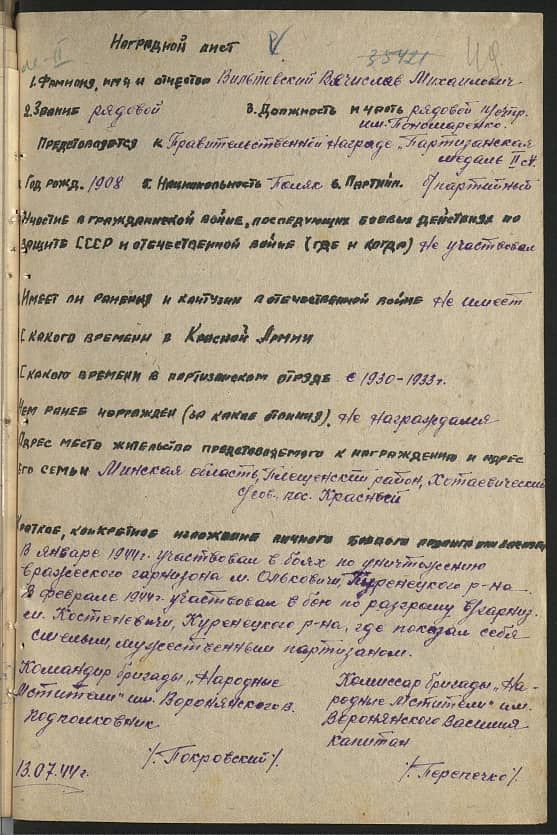 Наградной лист
35421
1. Фамилия, имя и отчество Вильтовский Вячислав Михаилович
2. Звание рядовой 3. Должность и часть рядовой п/отр.
им. Пономаренко.
Представляется к Правительственной награде „Партизанская
медаль II ст.
Год рожд. 1908 5. Национальность Поляк 6. Партийн. б/партийный
Участие в гражданской войне, последующих боевых действиях по
защите СССР и отечественной войне (где и когда) Не участвовал
Имеет ли ранения и контузии в отечественной войне Не имеет
С какого времени в Красной Армии
С какого времени в партизанском отряде с 1930-1933 г.
Чем ранее награжден (за какие отличия). Не награждался
Адрес места жительства представляемого к награждению и адрес
его семьи Минская область, Плещенский район, Хотаевический
с/сов. пос. Красный
Краткое, конкретное изложение личного боевого подвига или заслуг
В январе 1944 г. участвовал в боях по уничтожению
вражеского гарнизона м. Ольковичи, Куренецкого р-на
В феврале 1944 г. участвовал в бою по разгрому вр/гарниз.
м. Костеневичи, Куренецкого р-на, где показал себя
смелым, мужественным партизаном.
Командир бригады „Народные
Мстители" им. Воронянского В.
подполковник
/. Покровский /.
13.07.44 г.
Комиссар бригады „На-
родные Мстители" им.
Воронянского Василия
капитан
/. Перепечко /.